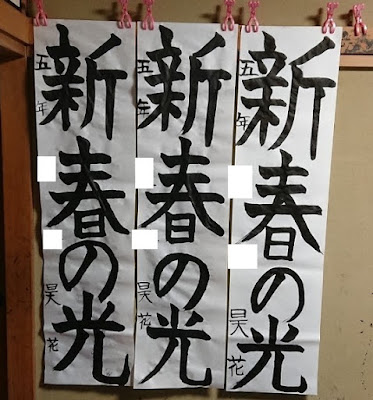 新春の光
五年 昊花
新春の光
五年 昊花
新春の光
五年 昊花